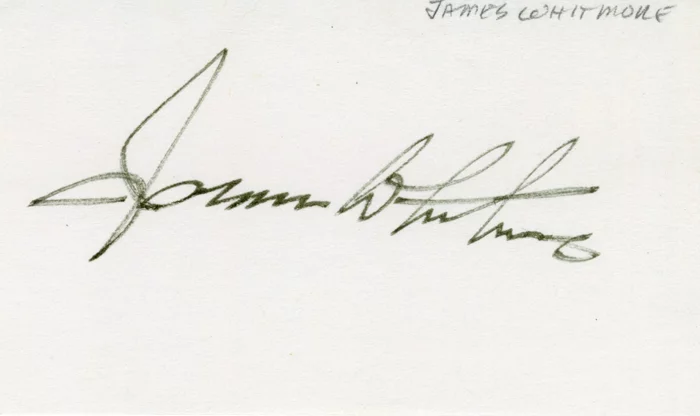 JAMES WHITMORE
James Whitmore